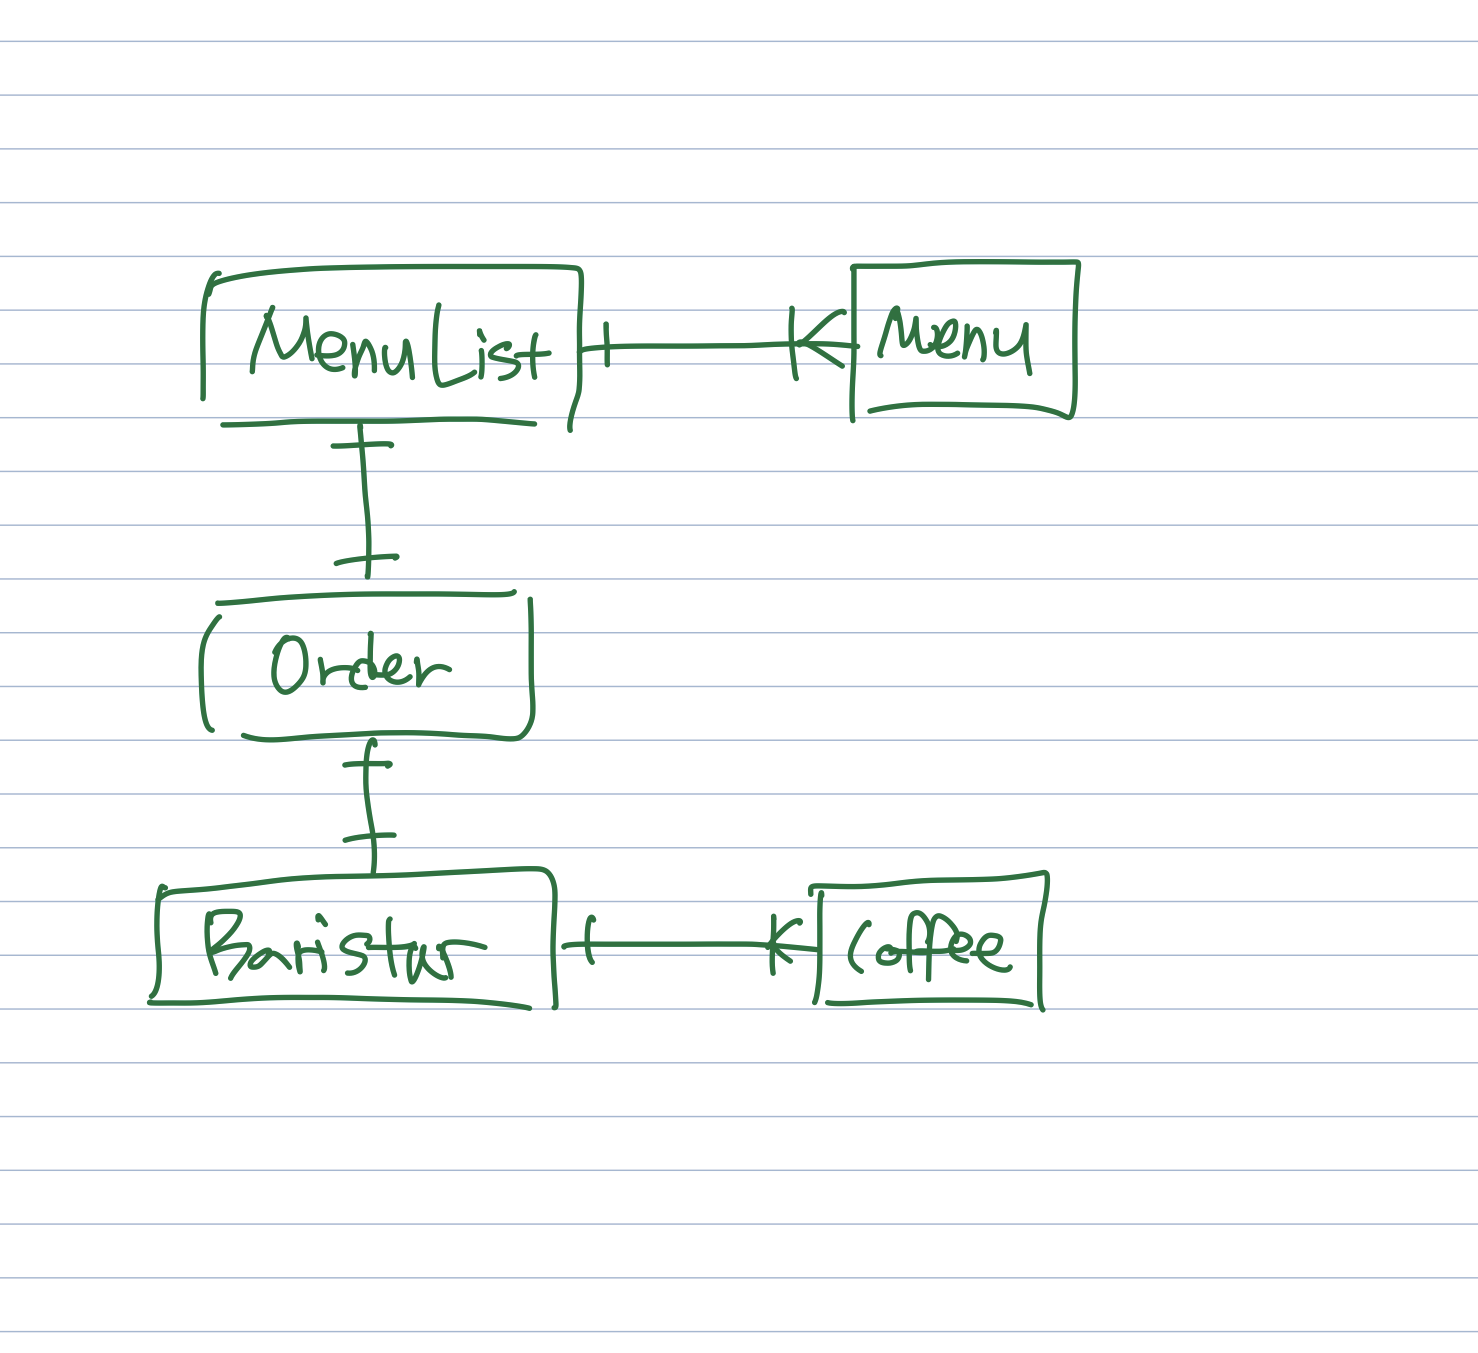 Menu List
Menu
Order
Baristar
Coffee